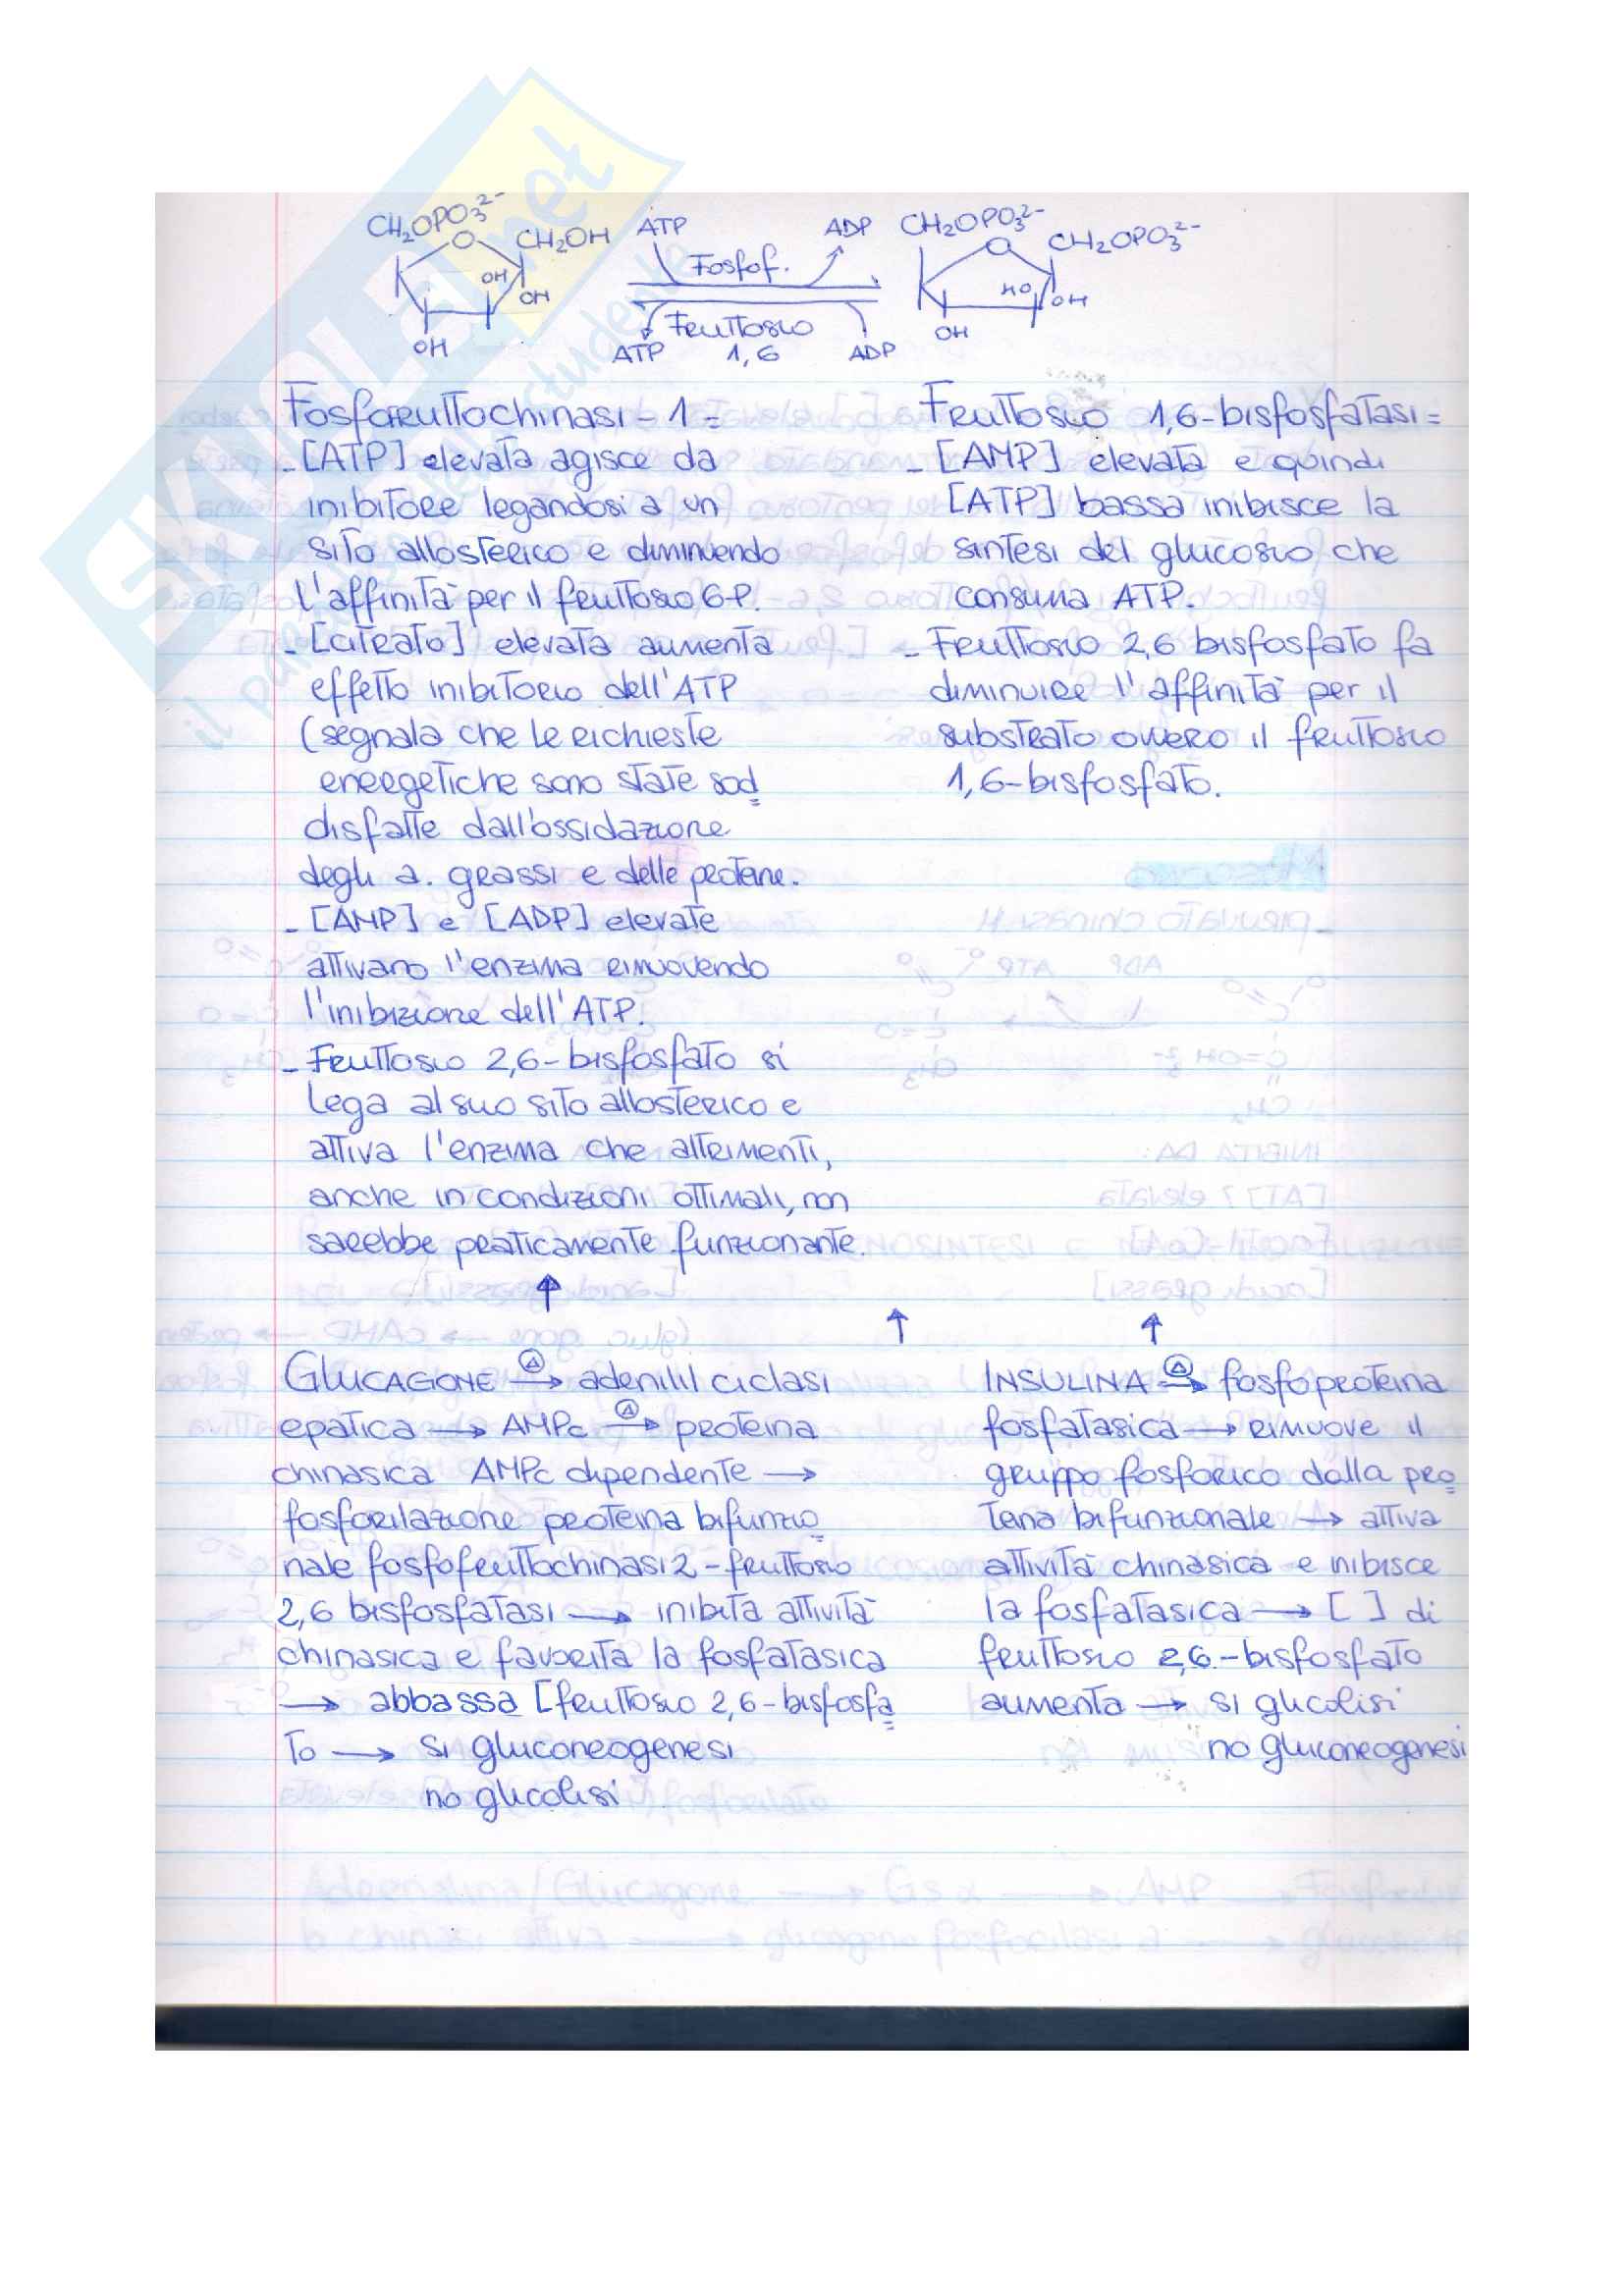 SKUOLA.net
il paradiso dello studente
CH2OPO3 2-
O
CH2OH
OH
OH
OH
ATP
ADP
Fosfof.
Fruttosio
1,6
ATP
ADP
CH2OPO3 2-
O
CH2OPO3 2-
HO
OH
OH
Fosforuttochinasi-1=
- [ATP] elevata agisce da
inibitore legandosi a un
sito allosterico e diminuendo
l'affinità per il fruttosio 6-P.
- [citrato] elevata aumenta
effetto inibitorio dell'ATP
(segnala che le richieste
energetiche sono state sod
disfatte dall'ossidazione
degli a. grassi e delle proteine.
- [AMP] e [ADP] elevate
attivano l'enzima rimuovendo
l'inibizione dell'ATP.
- Fruttosio 2,6-bisfosfato si
lega al suo sito allosterico e
attiva l'enzima che altrimenti,
anche in condizioni ottimali, non
sarebbe praticamente funzionante.
↑
Fruttosio 1,6-bisfosfatasi=
- [AMP] elevata e quindi
[ATP] bassa inibisce la
sintesi del glucosio che
consuma ATP.
- Fruttosio 2,6 bisfosfato fa
diminuire l'affinità per il
substrato ovvero il fruttosio
1,6-bisfosfato.
↑ ↑
GLUCAGONE → adenilil ciclasi
epatica → AMPc → proteina
chinasica AMPc dipendente →
fosforilazione proteina bifunzio
nale fosfofruttochinasi 2-fruttosio
2,6 bisfosfatasi → inibita attività
chinasica e favorita la fosfatasica
→ abbassa [fruttosio 2,6-bisfosfa
to → si gluconeogenesi
no glicolisi
INSULINA → fosfoproteina
fosfatasica → rimuove il
gruppo fosforico dalla pro
teina bifunzionale → attiva
attività chinasica e inibisce
la fosfatasica → [ ] di
fruttosio 2,6-bisfosfato
aumenta → si glicolisi
no gluconeogenesi